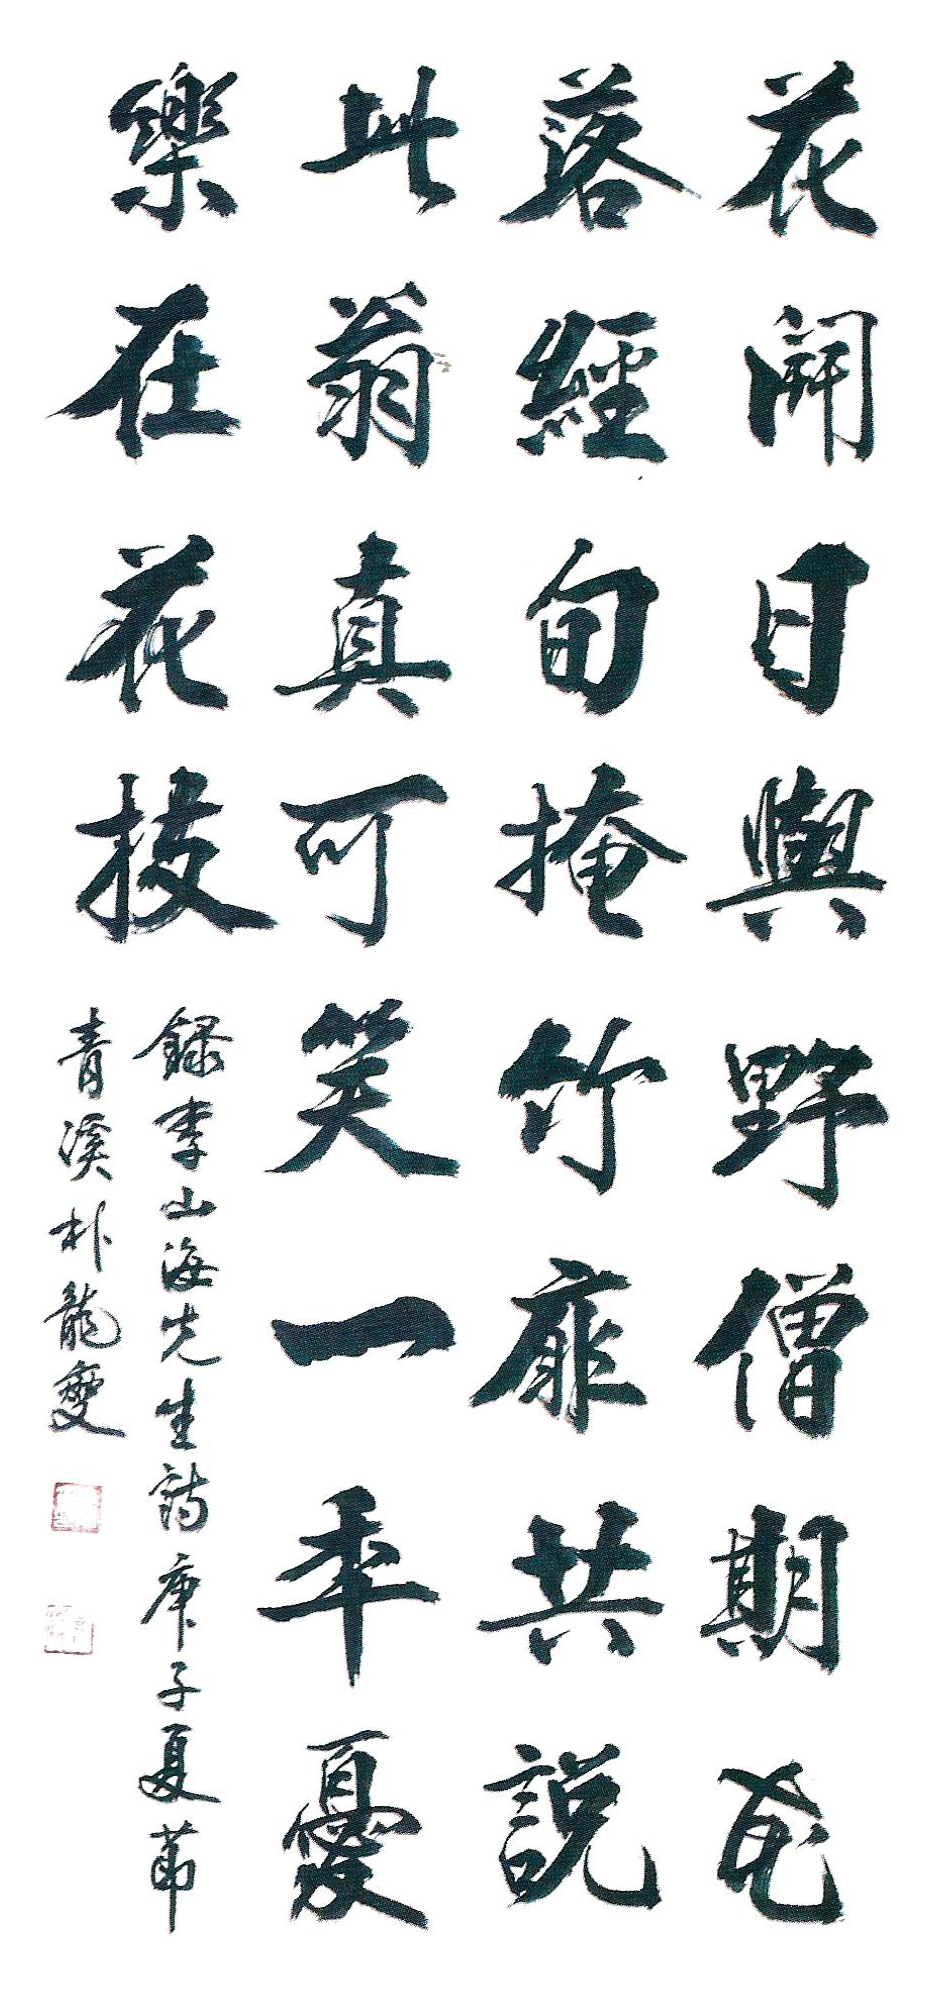 花開日與野僧期花
落經旬掩竹扉共說
此翁真可笑一年憂
樂在花枝
錄李山海先生詩庚子夏節
青溪朴龍燮